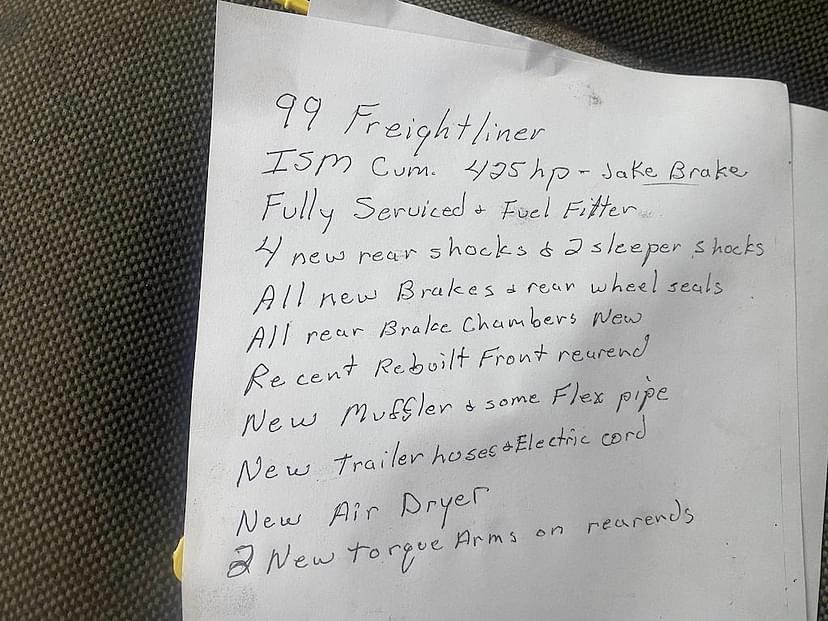 99 Freightliner
ISM Cum. 425hp - Jake Brake
Fully Serviced & Fuel Filter
4 new rear shocks & 2 sleeper shocks
All new Brakes & rear wheel seals
All rear Brake Chambers New
Recent Rebuilt Front rearend
New Muffler & some Flex pipe
New trailer hoses & Electric cord
New Air Dryer
2 New torque Arms on rearends